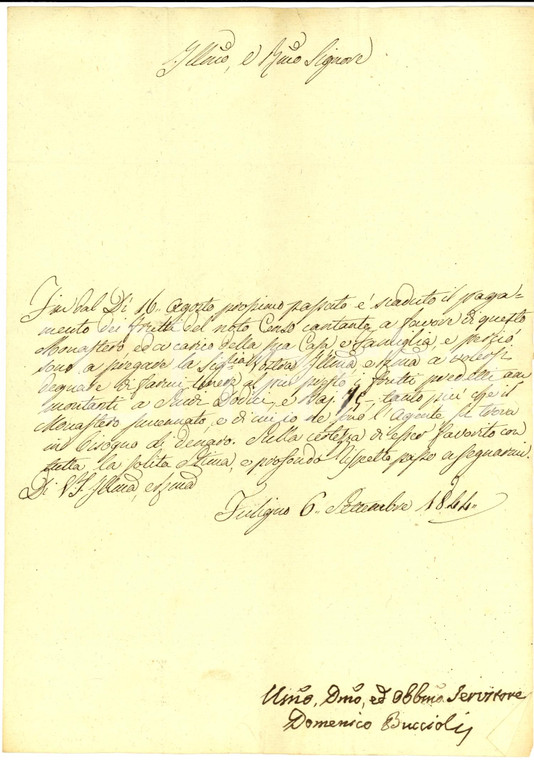 Illmo, e Rmo Signore
Fin dal Di 16. Agosto prossimo passato è scaduto il paga-
mento dei frutti del noto Censo cantante a favore di questo
Monastero, ed a carico della sua Casa e famiglia, e perciò
sono a pregare la Sigria Vostra Illma e Rma a volersi
degnare di farmi tenere al più presto i frutti predetti am
montanti a Scudi e Baj. tanto più che il
Monastero summenato, e di cui io ne sono l'Agente si trova
in bisogno di denaro. Nella certezza di esser favorito con
tutta la solita stima, e profondo rispetto passo a segnarmi.
Di V. S. Illma, e Rma
Fuligno 6. Settembre 1844.
Umo, Dmo, ed Obbmo Servitore
Domenico Buccioli